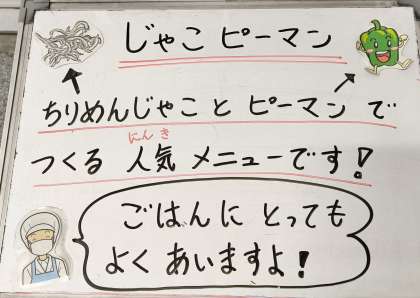 じゃこ ピーマン
ちりめんじゃこ と ピーマン で
にんき
つくる 人気 メニューです!
ごはんに とっても
よく あいますよ!